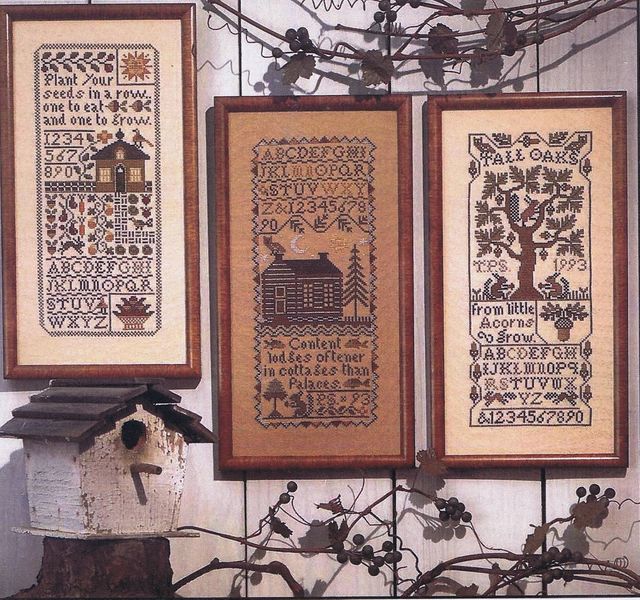 Plant Your
seeds in a row..
one to eat
and one to grow.
1234
567
890
ABCDEFGHI
JKLMNOPQR
STUV
WXYZ
ABCDEFGHI
JKLMNOPQR
STUVWXY
Z&12345678
90
Content
lodges oftener
in cottages than
Palaces.
PS 93
ABCDEFGHI
JKLMNOPQ
RSTUVWX
YZ
&1234567890
TALL OAKS
T.P.S. 1993
from little
Acorns
grow.